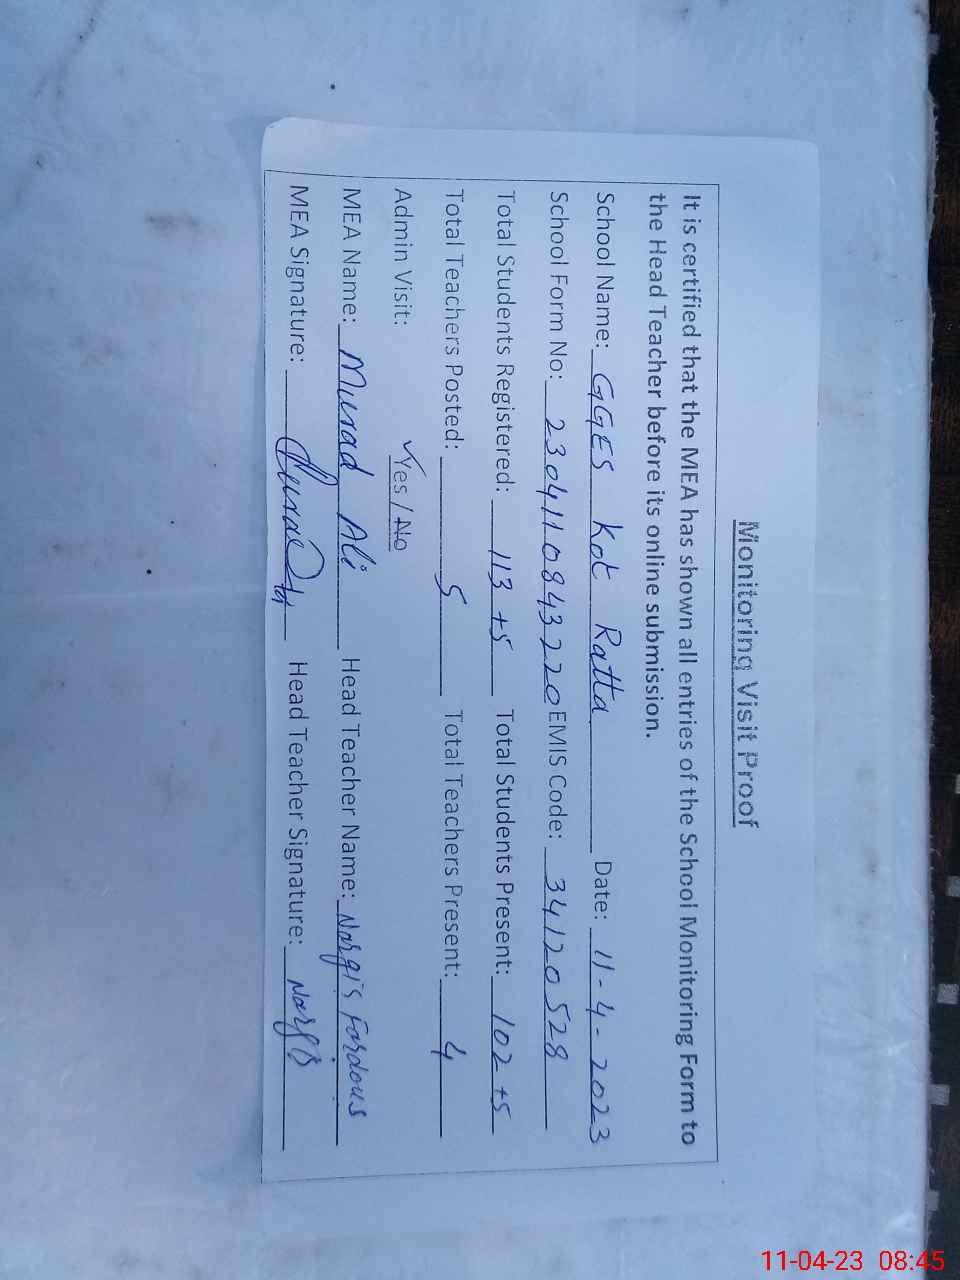 Monitoring Visit Proof
It is certified that the MEA has shown all entries of the School Monitoring Form to
the Head Teacher before its online submission.
School Name: GGES Kot Ratta Date: 11-4-2023
School Form No: 230411084322​0 EMIS Code: 34120528
Total Students Registered: 113 +5 Total Students Present: 102 +5
Total Teachers Posted: 5 Total Teachers Present: 4
Admin Visit: ✓Yes / No
MEA Name: Murad Ali Head Teacher Name: Nargis Fardous
MEA Signature: Head Teacher Signature: Nargis
11-04-23 08:45